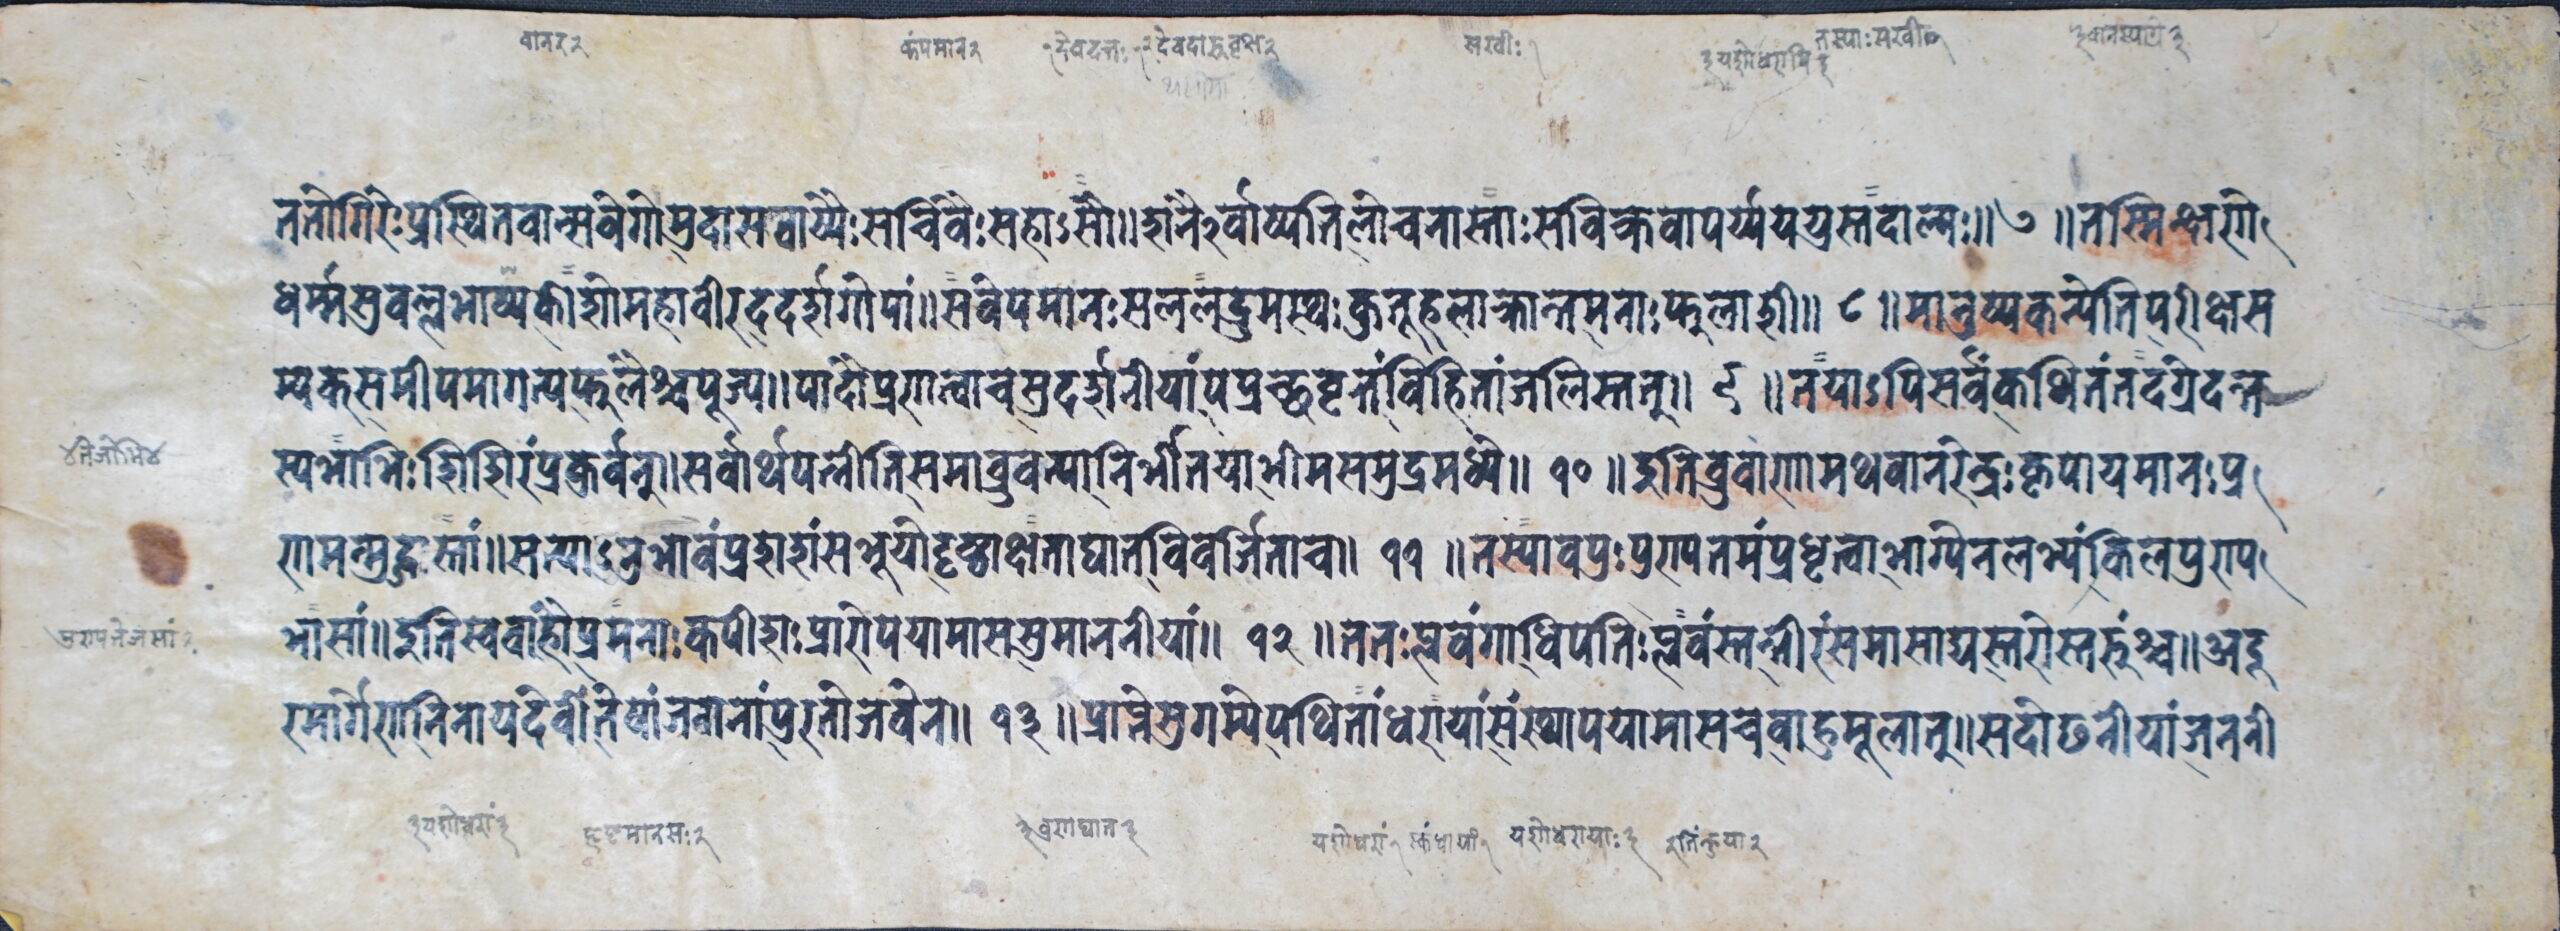 वानर२ कंपमान२ १देवदत्तः१ २देवदारुवृक्ष२ सखीः१ ३यशोधरापि३ तस्याःसखी१ ३वानरस्याग्रे३
ततोगिरेःप्रस्थितवान्सवेगोमुदासवाय्यैःसचिवैःसहाऽसौ॥शनैरवाष्पतिलोचनास्ताःसविक्लवापर्य्यययुस्तदाल्यः॥७॥तस्मिन्क्षणे
धर्म्मसुवल्लभाष्यकोशोमहावीरुददर्शगोपां॥सवेपमानःसललद्रुमस्थःकुतूहलाक्रान्तमनाःफलाशी॥८॥मानुष्यकन्येतिपरीक्ष्यस
म्यक्समीपमागत्यफलैश्चपूज्य॥पादौप्रणत्वाचसुदर्शनीयांपप्रच्छवृत्तंविहितांजलिस्तत्॥९॥तयाऽपिसर्वंकथितंतदग्रेदन्त
स्यभाभिःशिशिरंप्रकुर्वन्॥सर्वार्थपत्नीतिसमाब्रुवन्त्यानिर्भीतयाभीमसमुद्रमध्ये॥१०॥इतिब्रुवाणामथवानरेन्द्रःकृपायमानःप्र
णमन्मुदास्तां॥सत्याऽनुभावंप्रशशंसभूयोदृष्ट्वाक्षताघातविवर्जिताच॥११॥तस्यावपुःपुण्यतमंप्रधृत्वाभाग्येनलभ्यंकिलपुण्य
भासां॥इतिस्वबाहौप्रमनाःकपीशःप्रारोपयामाससुमाननीयां॥१२॥ततःप्लवंगाधिपतिःप्लवंस्तत्तीरंसमासाद्यस्तरोस्तरुंश्च॥अदू
रमार्गेणनिनायदेवींतेषांजवानांपुरतोजवेन॥१३॥प्राप्तेसुगम्येपथितांधरायांसंस्थापयामासचबाहुमूलात्॥सदोछनीयांजननी
३यशोधरां३ हृष्टमानसः२ ३व्रणाघात३ यशोधरां१ स्कंधायां१ यशोधरायाः३